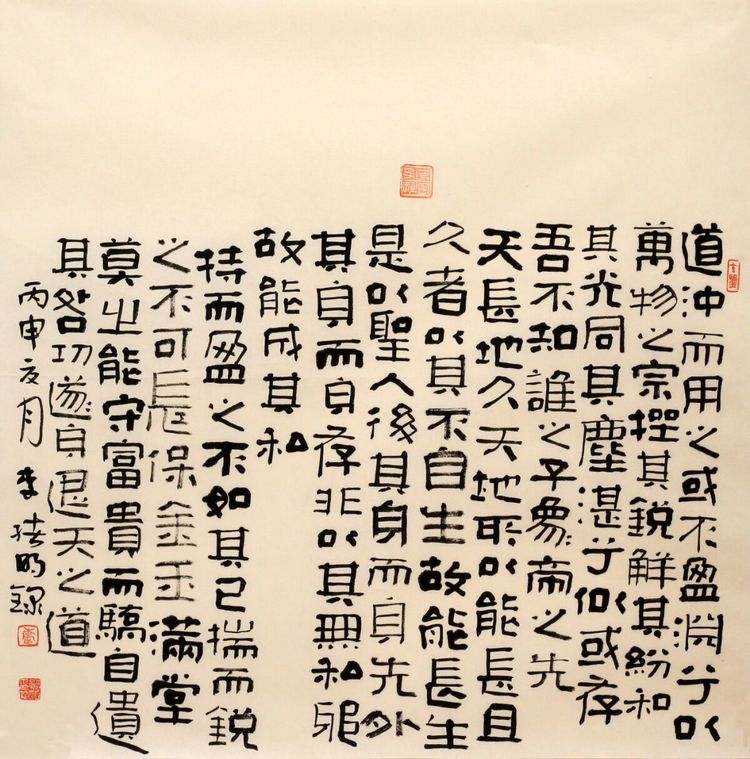 道沖而用之或不盈淵兮以
萬物之宗挫其銳解其紛和
其光同其塵湛兮似或存
吾不知誰之子象帝之先
天長地久天地所以能長且
久者以其不自生故能長生
是以聖人後其身而身先外
其身而身存非以其無私邪
故能成其私
持而盈之不如其已揣而銳
之不可長保金玉滿堂
莫之能守富貴而驕自遺
其咎功遂身退天之道
丙申夏月 李明錄